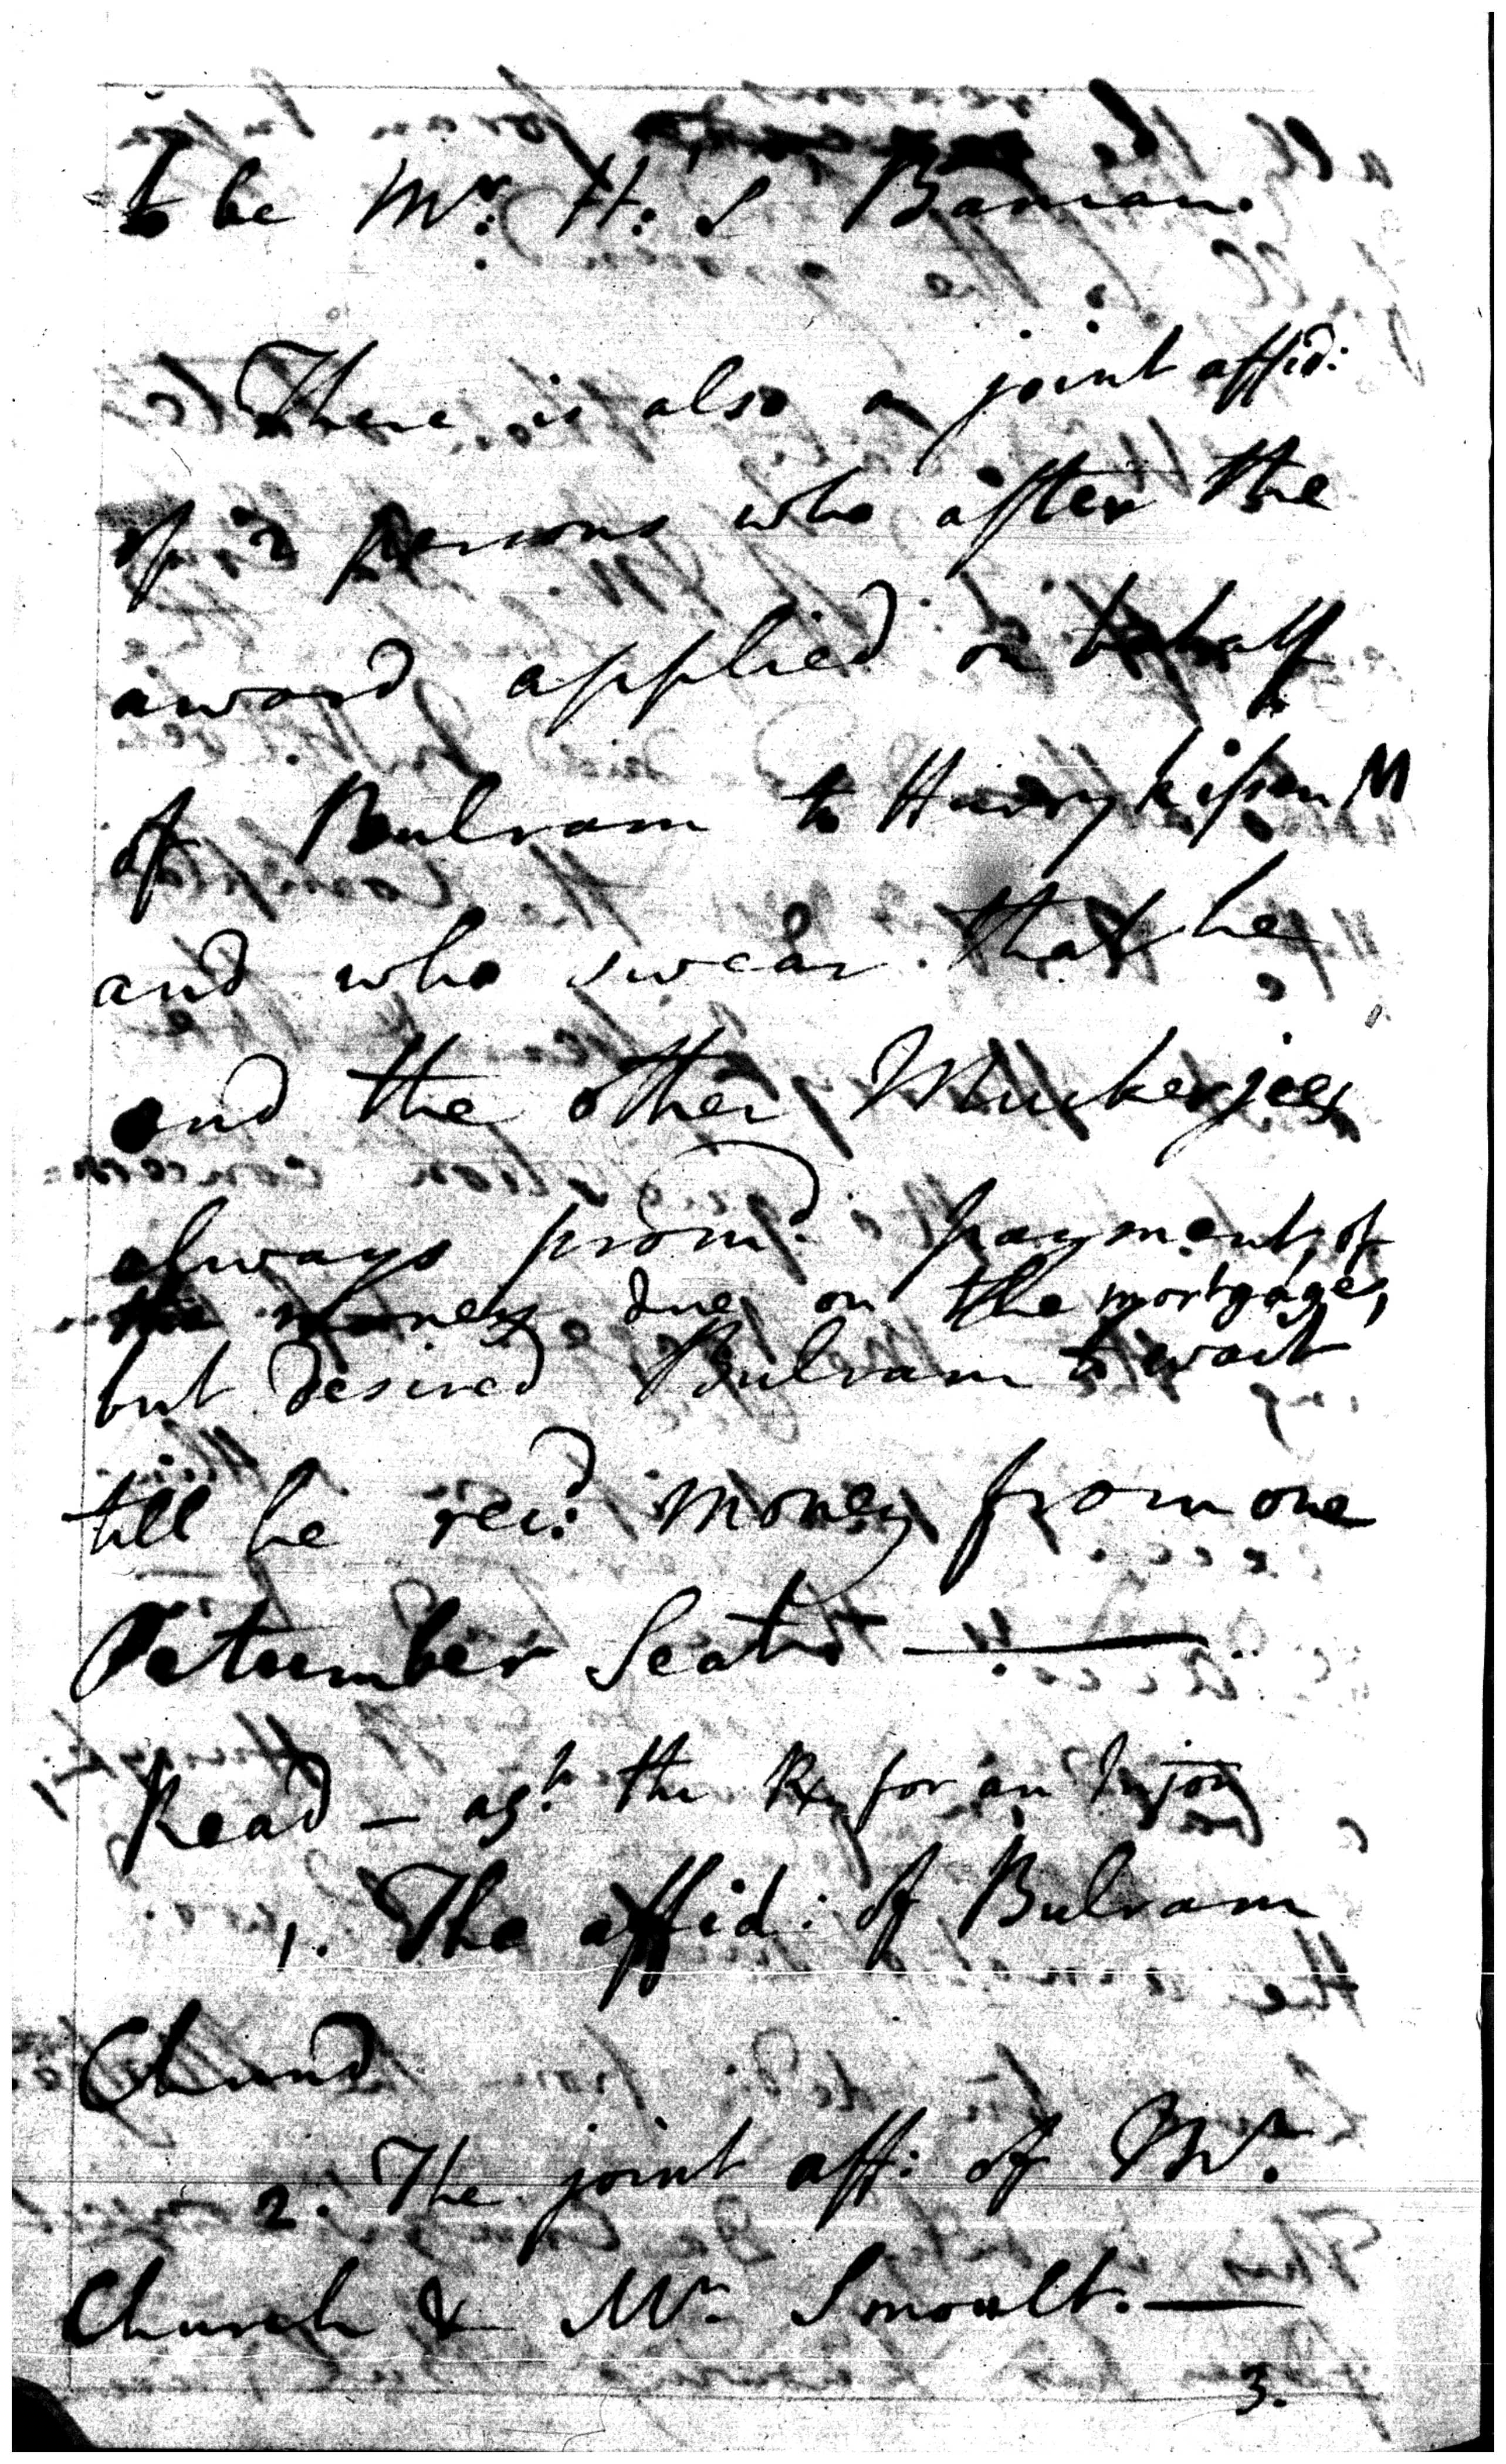 to be Mr. H: S Banian.
There is also a joint affid:
of 2 persons who after the
award applied on behalf
of Bulram to Hurrykissen M
and who swear that he
and the other Muckerjees
always promd. payment of
the money due on the mortgages,
but desired Bulram to wait
till he recd: money from one
Pitumber Seat
Read — agt. the for an Injon
1. The affid: of Bulram
Chund
2. The joint aff: of Mr.
Church & Mr. Smoult. —
3.